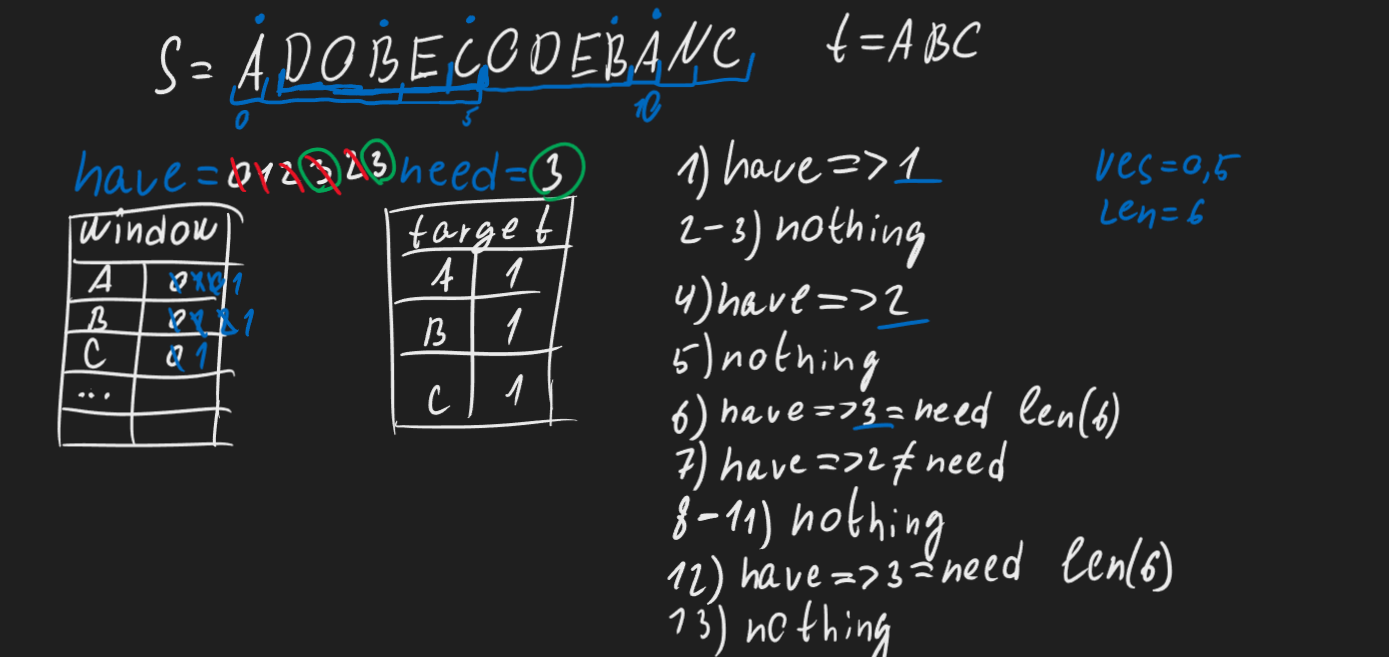 S = ADOBECODEBANC
t = ABC
0 5 10
have = 0 1 2 3 2 3 need = 3
window
A 0 1 0 1
B 0 1 2 1
C 0 1
...
target
A 1
B 1
C 1
1) have => 1
2-3) nothing
4) have => 2
5) nothing
6) have => 3 = need len(6)
7) have => 2 ≠ need
8-11) nothing
12) have => 3 = need len(6)
13) nothing
res = 0,5
Len = 6